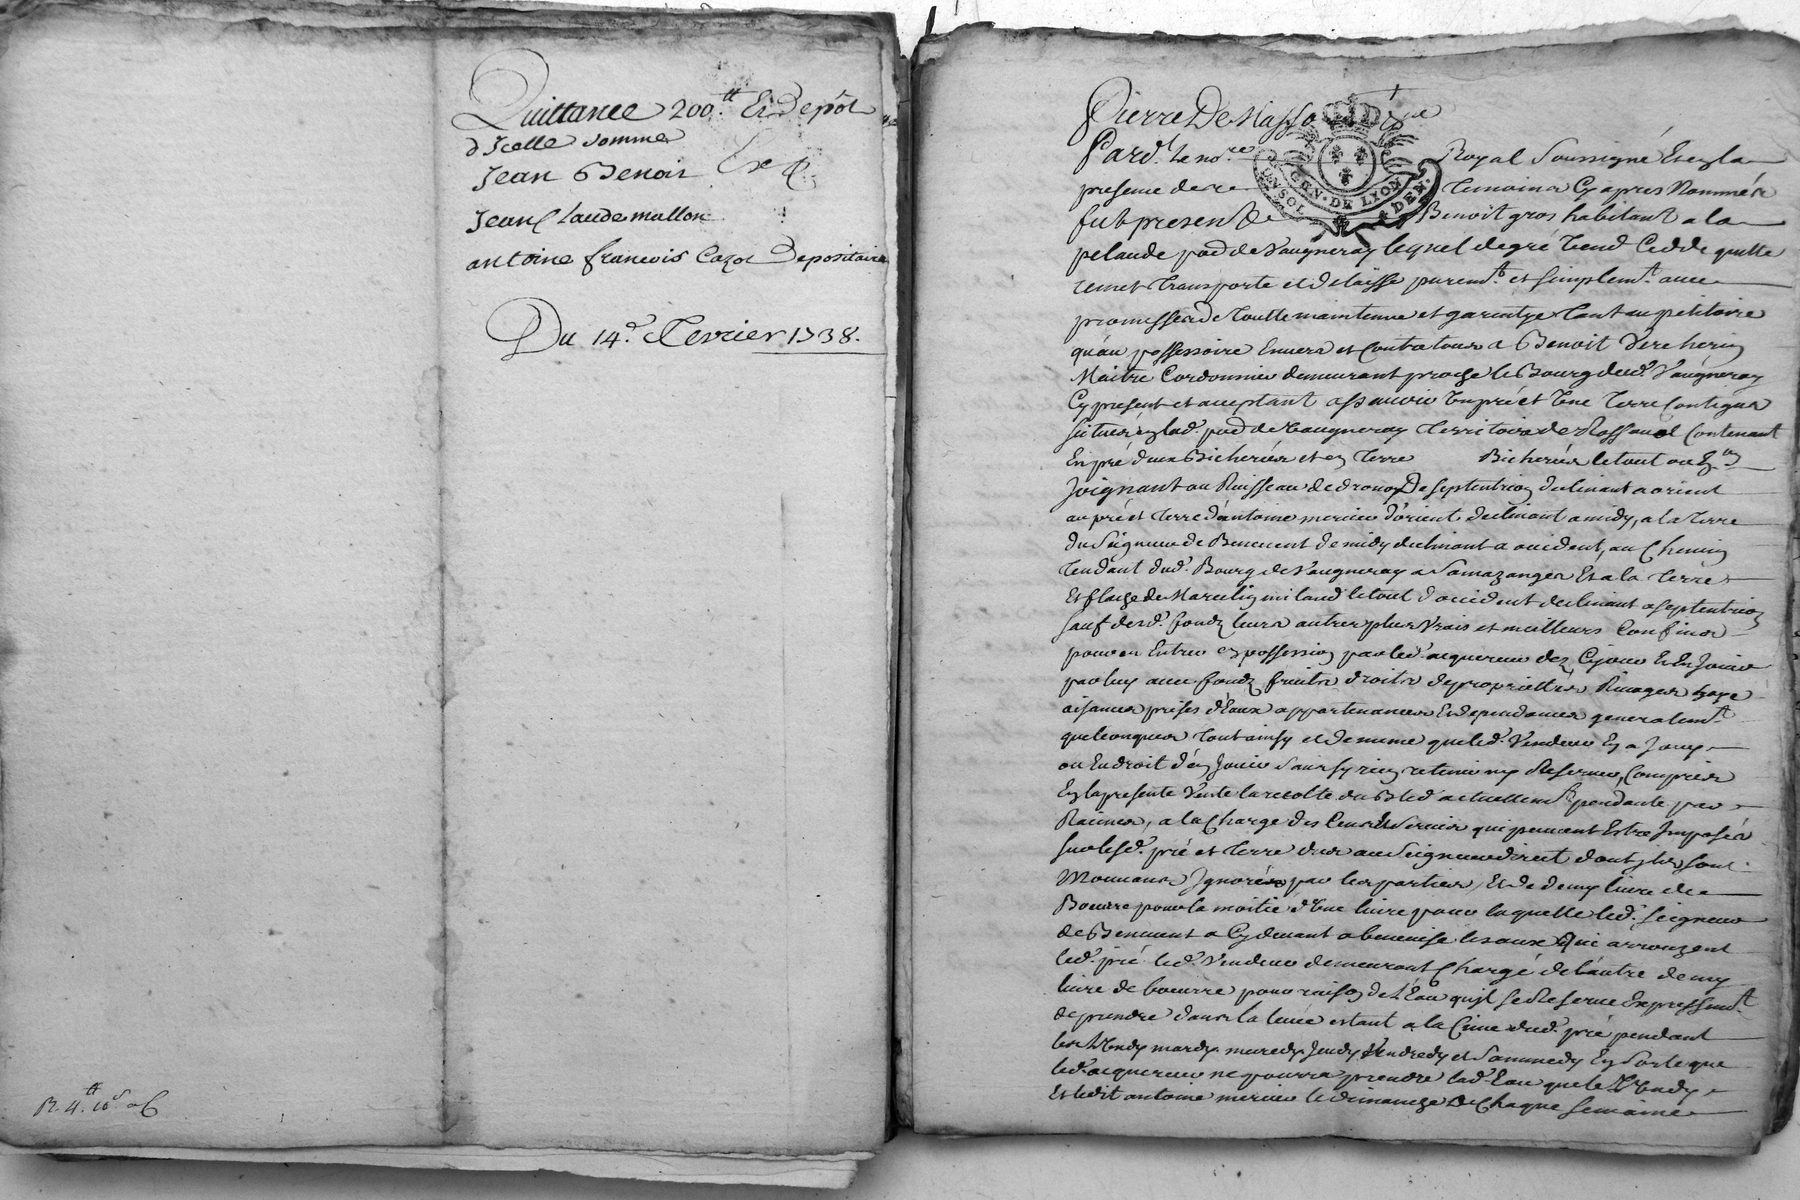 Quittance 200.tt Et Depôt
d'Icelle somme
Jean Benoit Ex
Jean Claude mallon
antoine francois Cazot Depositaire
Du 14.e fevrier 1738.
R. 4.tt 10.s
Pierre De Masso
Pard.t le no.re Royal Soussigné Et en la
presence de Temoins Cy apres Nommés
fut present Benoit gros habitant a la
pelaude pa.sse de Vaugneray lequel de gré Vend Cedde quitte
remet transporte et delaisse purem.t et simplem.t avec
promesses de toutte maintenue et garentye tant au petitoire
qu'au possessoire Envers et Contre tous a Benoit Vercherin
Maitre Cordonnier demeurant proche le Bourg dud. Vaugneray
Cy present et acceptant assavoir Un pré et Une Terre Contigus
situés en lad. pa.sse de Vaugneray Territoire de Contenant
En pré deux Bicherées et en Terre Bicherées le tout ou En.on
Joignant au Ruisseau de De septentrion declinant a orient
au pré et Terre d'antoine mercier d'orient declinant a midy, a la Terre
du Seigneur de Benevent de midy declinant a occident, au Chemin
Tendant dud. Bourg de Vaugneray a Et a la Terre
Et de le tout d'occident declinant a septentrion
sauf desd. fondz leurs autres plus Vrais et meilleurs Confins
pour en Entrer en possession par led. acquereur dez Cejour Et En Jouir
par luy avec fondz fruits droits de proprietté Rivages haye
aisances prises d'Eaux appartenances Et dependances generalem.t
quelconques Tout ainsy et de meme que led. Vendeur En a Jouy
ou Eu droit d'en Jouir sans sy rien retenir ny Reserver, Compris
En la presente Vente la recolte du Bled actuellem.t pendante par
Racines, a la Charge des Cens Et Servis qui peuvent Estre Imposés
sur lesd. pré et Terre dus au Seigneur direct dont ils sont
Mouvans Ignorés par les parties, Et de demy livre de
Beurre pour la moitié d'Une livre pour laquelle led. seigneur
de Benevent a Cydevant abenevisé les eaux Qui arrouzent
led. pré led. Vendeur demeurant Chargé de l'autre demy
livre de beurre pour raison de l'Eau qu'il se Reserve Expressem.t
de prendre dans la levée estant a la Cime dud. pré pendant
les mardy mecredy Jeudy Vendredy et Sammedy En sorte que
led. acquereur ne pourra prendre lad. Eau que le
Et ledit antoine mercier le dimanche De Chaque semaine